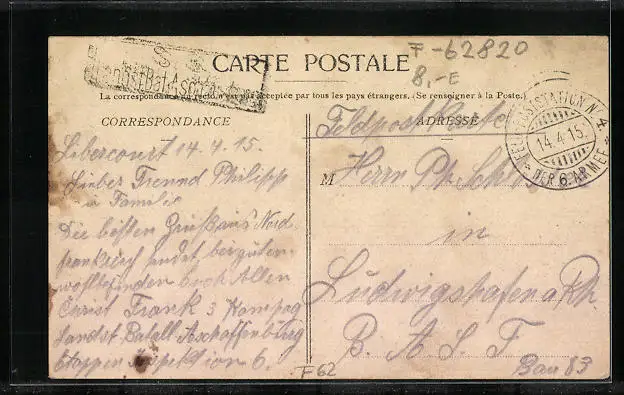 F-62820
8,-E
S. B.
Landst Bat. Aschaffenburg
CARTE POSTALE
La correspondance au recto n'est pas acceptée par tous les pays étrangers. (Se renseigner à la Poste.)
CORRESPONDANCE
Libercourt 14.4.15.
Lieber Freund Philipp
u Familie
Die besten Grüße aus Nord-
frankreich sendet bei guten
wohlbefinden euch Allen
Christ Frank 3 Kompag
Landst. Batall Aschaffenburg
Etappen Inspektion 6.
ADRESSE
Feldpostkarte
M Herrn Ph.
in
Ludwigshafen a Rh.
B. A. S. F
Bau 83
F62
FELDPOSTSTATION No 4
14.4.15.
DER 6. ARMEE